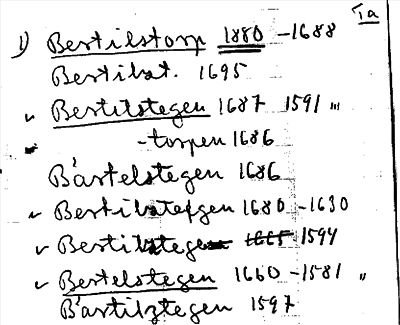 Ia
1) Bertilstorp 1880 -1688
Bertilst. 1695
Bertilstegen 1687 1591 "
-torpen 1686
Bärtelstegen 1686
Bertilstefgen 1680 -1630
Bertilstegen 1594
Bertelstegen 1660 -1581 "
Bärtilztegen 1597